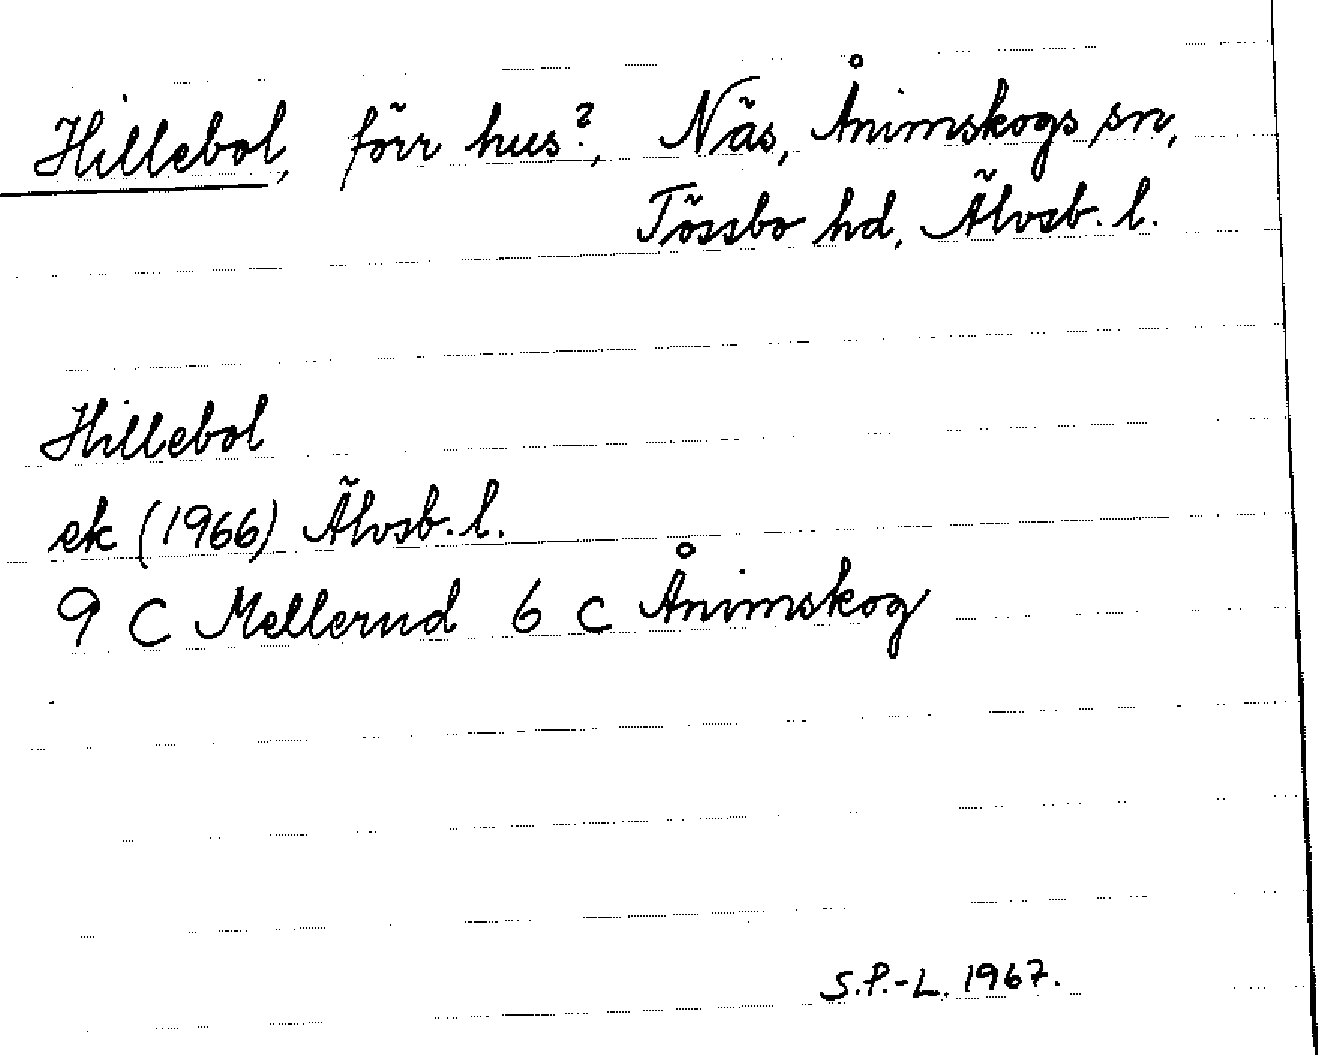 Hillebol, förr hus?, Näs, Ånimskogs sn,
Tössbo hd, Älvsb. l.
Hillebol
ek (1966) Älvsb. l.
9 C Mellerud 6 c Ånimskog
S.P.-L. 1967.